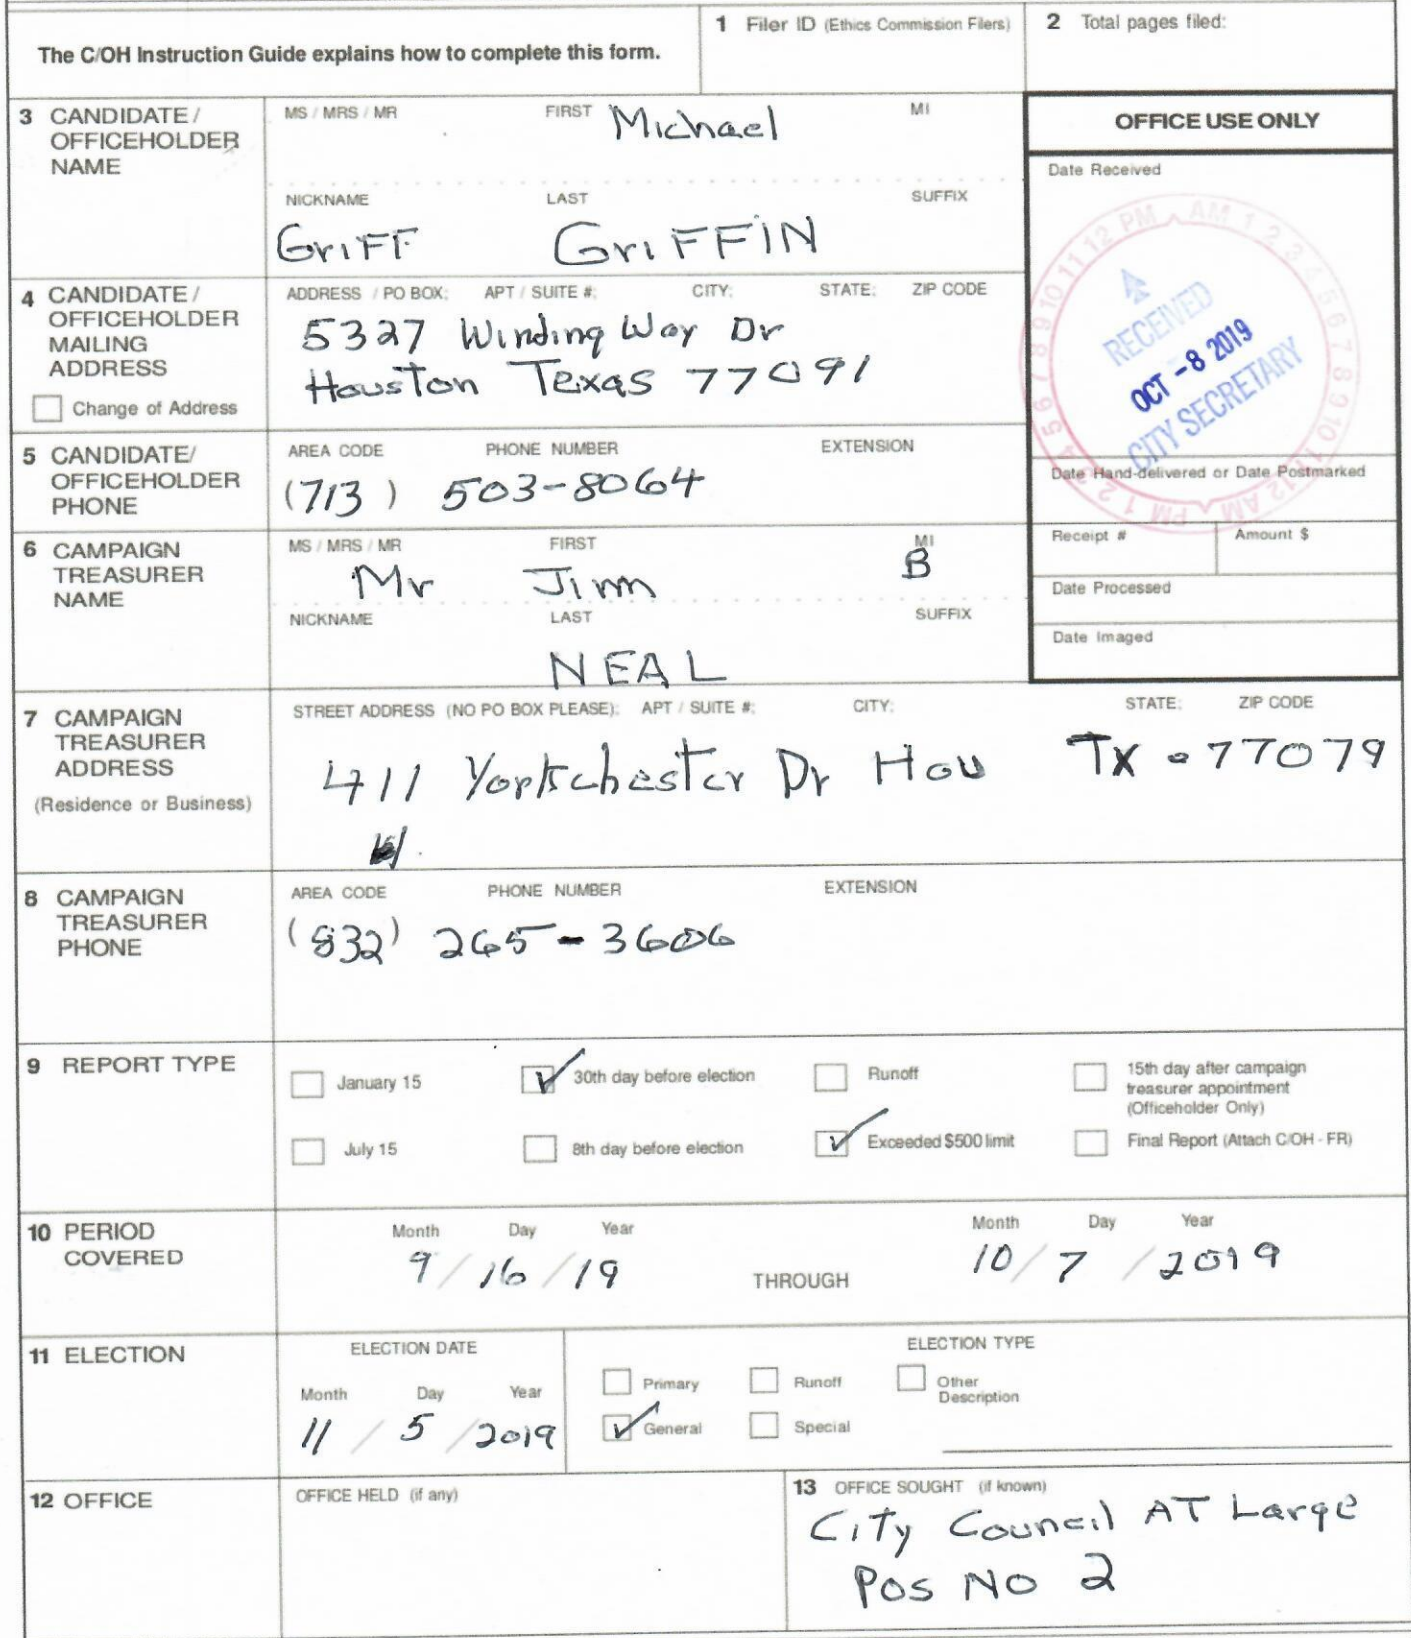 The C/OH Instruction Guide explains how to complete this form.
1 Filer ID (Ethics Commission Filers)
2 Total pages filed:
3 CANDIDATE / OFFICEHOLDER NAME
MS / MRS / MR FIRST Michael MI
NICKNAME LAST SUFFIX
GriFF GriFFiN
OFFICE USE ONLY
Date Received
12 PM AM 1 2 3 4 5 6 7 8 9 10 11 12 AM PM 1 2 3 4 5 6 7 8 9 10 11
RECEIVED
OCT -8 2019
CITY SECRETARY
Date Hand-delivered or Date Postmarked
Receipt # Amount $
Date Processed
Date Imaged
4 CANDIDATE / OFFICEHOLDER MAILING ADDRESS
Change of Address
ADDRESS / PO BOX; APT / SUITE #; CITY; STATE; ZIP CODE
5327 Winding Way Dr
Houston Texas 77091
5 CANDIDATE/ OFFICEHOLDER PHONE
AREA CODE PHONE NUMBER EXTENSION
(713) 503-8064
6 CAMPAIGN TREASURER NAME
MS / MRS / MR FIRST MI
Mr Jim B
NICKNAME LAST SUFFIX
NEAL
7 CAMPAIGN TREASURER ADDRESS
(Residence or Business)
STREET ADDRESS (NO PO BOX PLEASE); APT / SUITE #; CITY; STATE; ZIP CODE
411 Yorkchester Dr Hou TX - 77079
8 CAMPAIGN TREASURER PHONE
AREA CODE PHONE NUMBER EXTENSION
(832) 265-3606
9 REPORT TYPE
January 15 30th day before election Runoff 15th day after campaign treasurer appointment (Officeholder Only)
July 15 8th day before election Exceeded $500 limit Final Report (Attach C/OH - FR)
10 PERIOD COVERED
Month Day Year Month Day Year
9 / 16 / 19 THROUGH 10 / 7 / 2019
11 ELECTION
ELECTION DATE
Month Day Year
11 / 5 / 2019
ELECTION TYPE
Primary Runoff Other Description
General Special
12 OFFICE
OFFICE HELD (if any)
13 OFFICE SOUGHT (if known)
City Council AT Large
Pos No 2